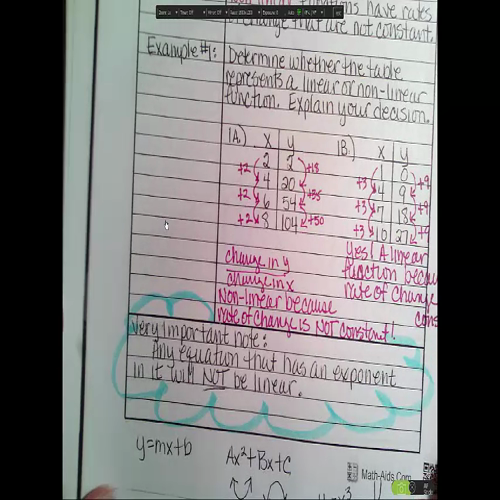 Functions have rates
of change that are not constant.
Example #1:
Determine whether the table
represents a linear or non-linear
function. Explain your decision.
1A.) x y
2 2
4 20
6 54
8 104
+2 +18
+2
+2 +50
1B.) x y
1 0
4 9
7 18
10 27
+3 +9
+3 +9
+3 +9
change in y
change in x
Non-linear because
rate of change is NOT constant!
Yes! A linear
function becau
rate of change
cons
Very Important note:
Any equation that has an exponent
in it will NOT be linear.
y=mx+b
Ax²+Bx+C
Math-Aids.Com